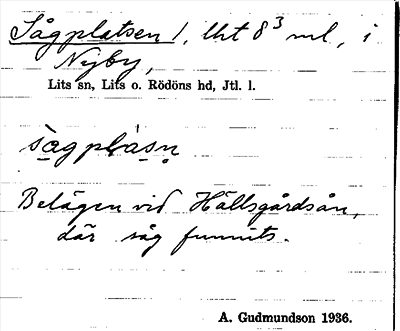 Sågplatsen 1, lht 8³ ml, i
Nyby,
Lits sn, Lits o. Rödöns hd, Jtl. l.
sagplàsn
Belägen vid Hällsgårdsån,
där såg funnits.
A. Gudmundson 1936.